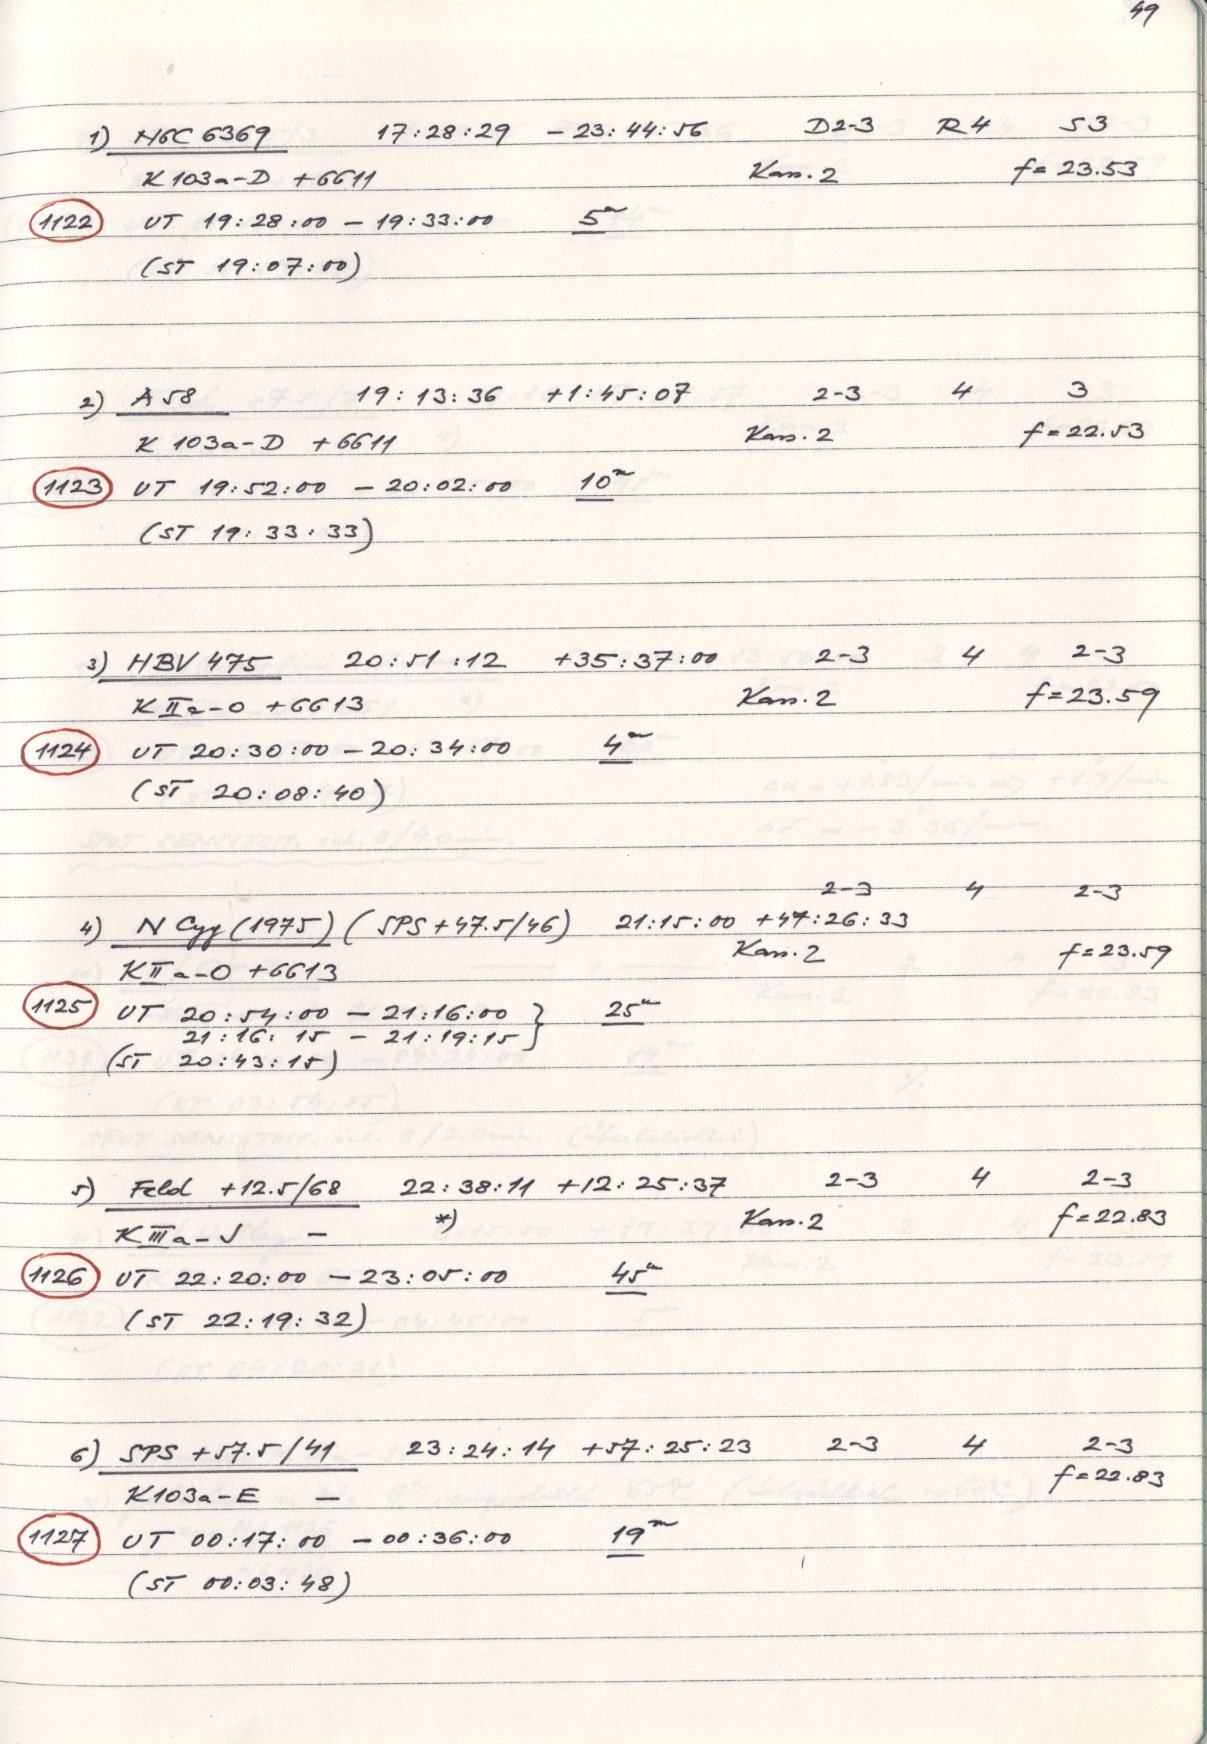 49
1) NGC 6369 17:28:29 -23:44:56 D2-3 R4 S3
K 103a-D +6611 Kass.2 f=23.53
1122 UT 19:28:00 - 19:33:00 5m
(ST 19:07:00)
2) A 58 19:13:36 +1:45:07 2-3 4 3
K 103a-D +6611 Kass.2 f=22.53
1123 UT 19:52:00 - 20:02:00 10m
(ST 19:33:33)
3) HBV 475 20:51:12 +35:37:00 2-3 4 2-3
K IIa-O +6613 Kass.2 f=23.59
1124 UT 20:30:00 - 20:34:00 4m
(ST 20:08:40)
2-3 4 2-3
4) N Cyg (1975) (SPS +47.5/46) 21:15:00 +47:26:33
K IIa-O +6613 Kass.2 f=23.59
1125 UT 20:54:00 - 21:16:00 } 25m
21:16:15 - 21:19:15
(ST 20:43:15)
5) Feld +12.5/68 22:38:11 +12:25:37 2-3 4 2-3
K IIIa-J - *) Kass.2 f=22.83
1126 UT 22:20:00 - 23:05:00 45m
(ST 22:19:32)
6) SPS +57.5/41 23:24:14 +57:25:23 2-3 4 2-3
K103a-E - f=22.83
1127 UT 00:17:00 - 00:36:00 19m
(ST 00:03:48)